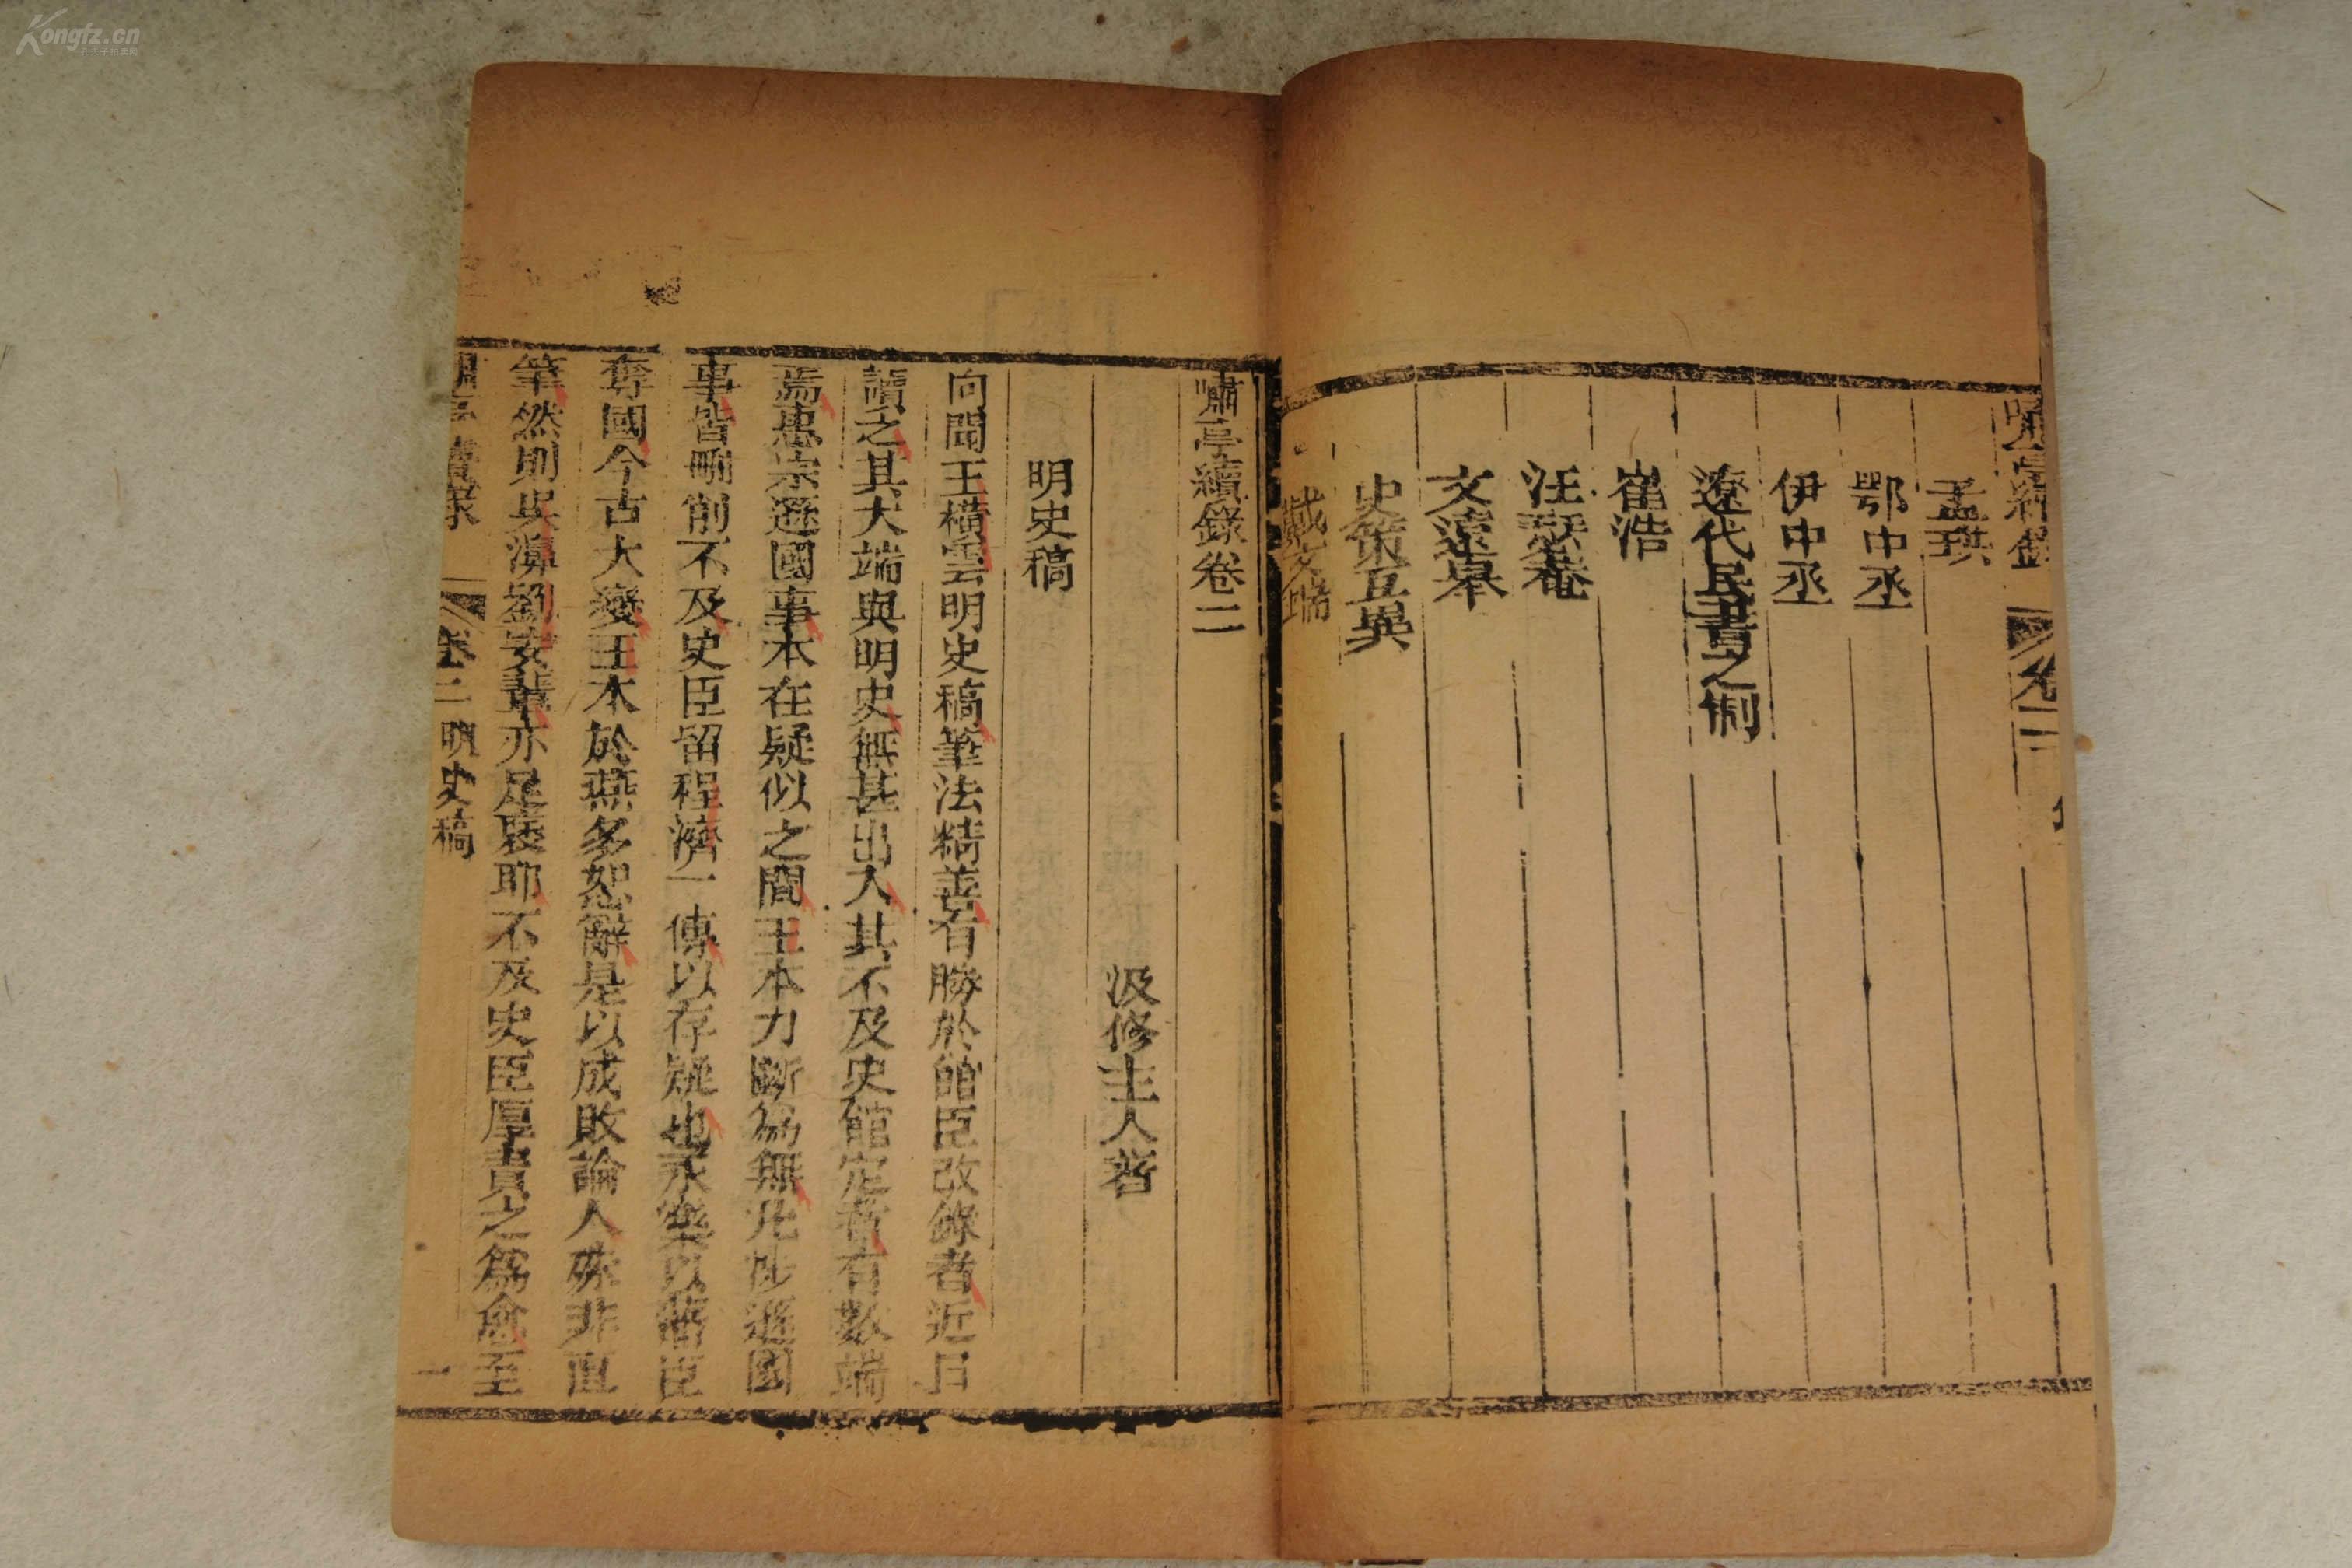 Kongfz.cn
嘯亭續錄
卷二
孟珙
鄂中丞
伊中丞
遼代民書之制
崔浩
汪菴
文遠皋
史策互異
戴文端
嘯亭續錄卷二
汲修主人著
明史稿
向聞王橫雲明史稿筆法精善有勝於館臣改錄者近日
讀之其大端與明史無甚出入其不及史館定者有數端
焉惠宗遜國事本在疑似之間王本力斷爲無凡涉遜國
事皆刪削不及史臣留程濟一傳以存疑也永樂以藩臣
奪國今古大變王本於燕多恕辭是以成敗論人殊非直
筆然則吳濞劉安輩亦足褒耶不及史臣厚責之爲愈至
嘯亭續錄 卷二 明史稿 一